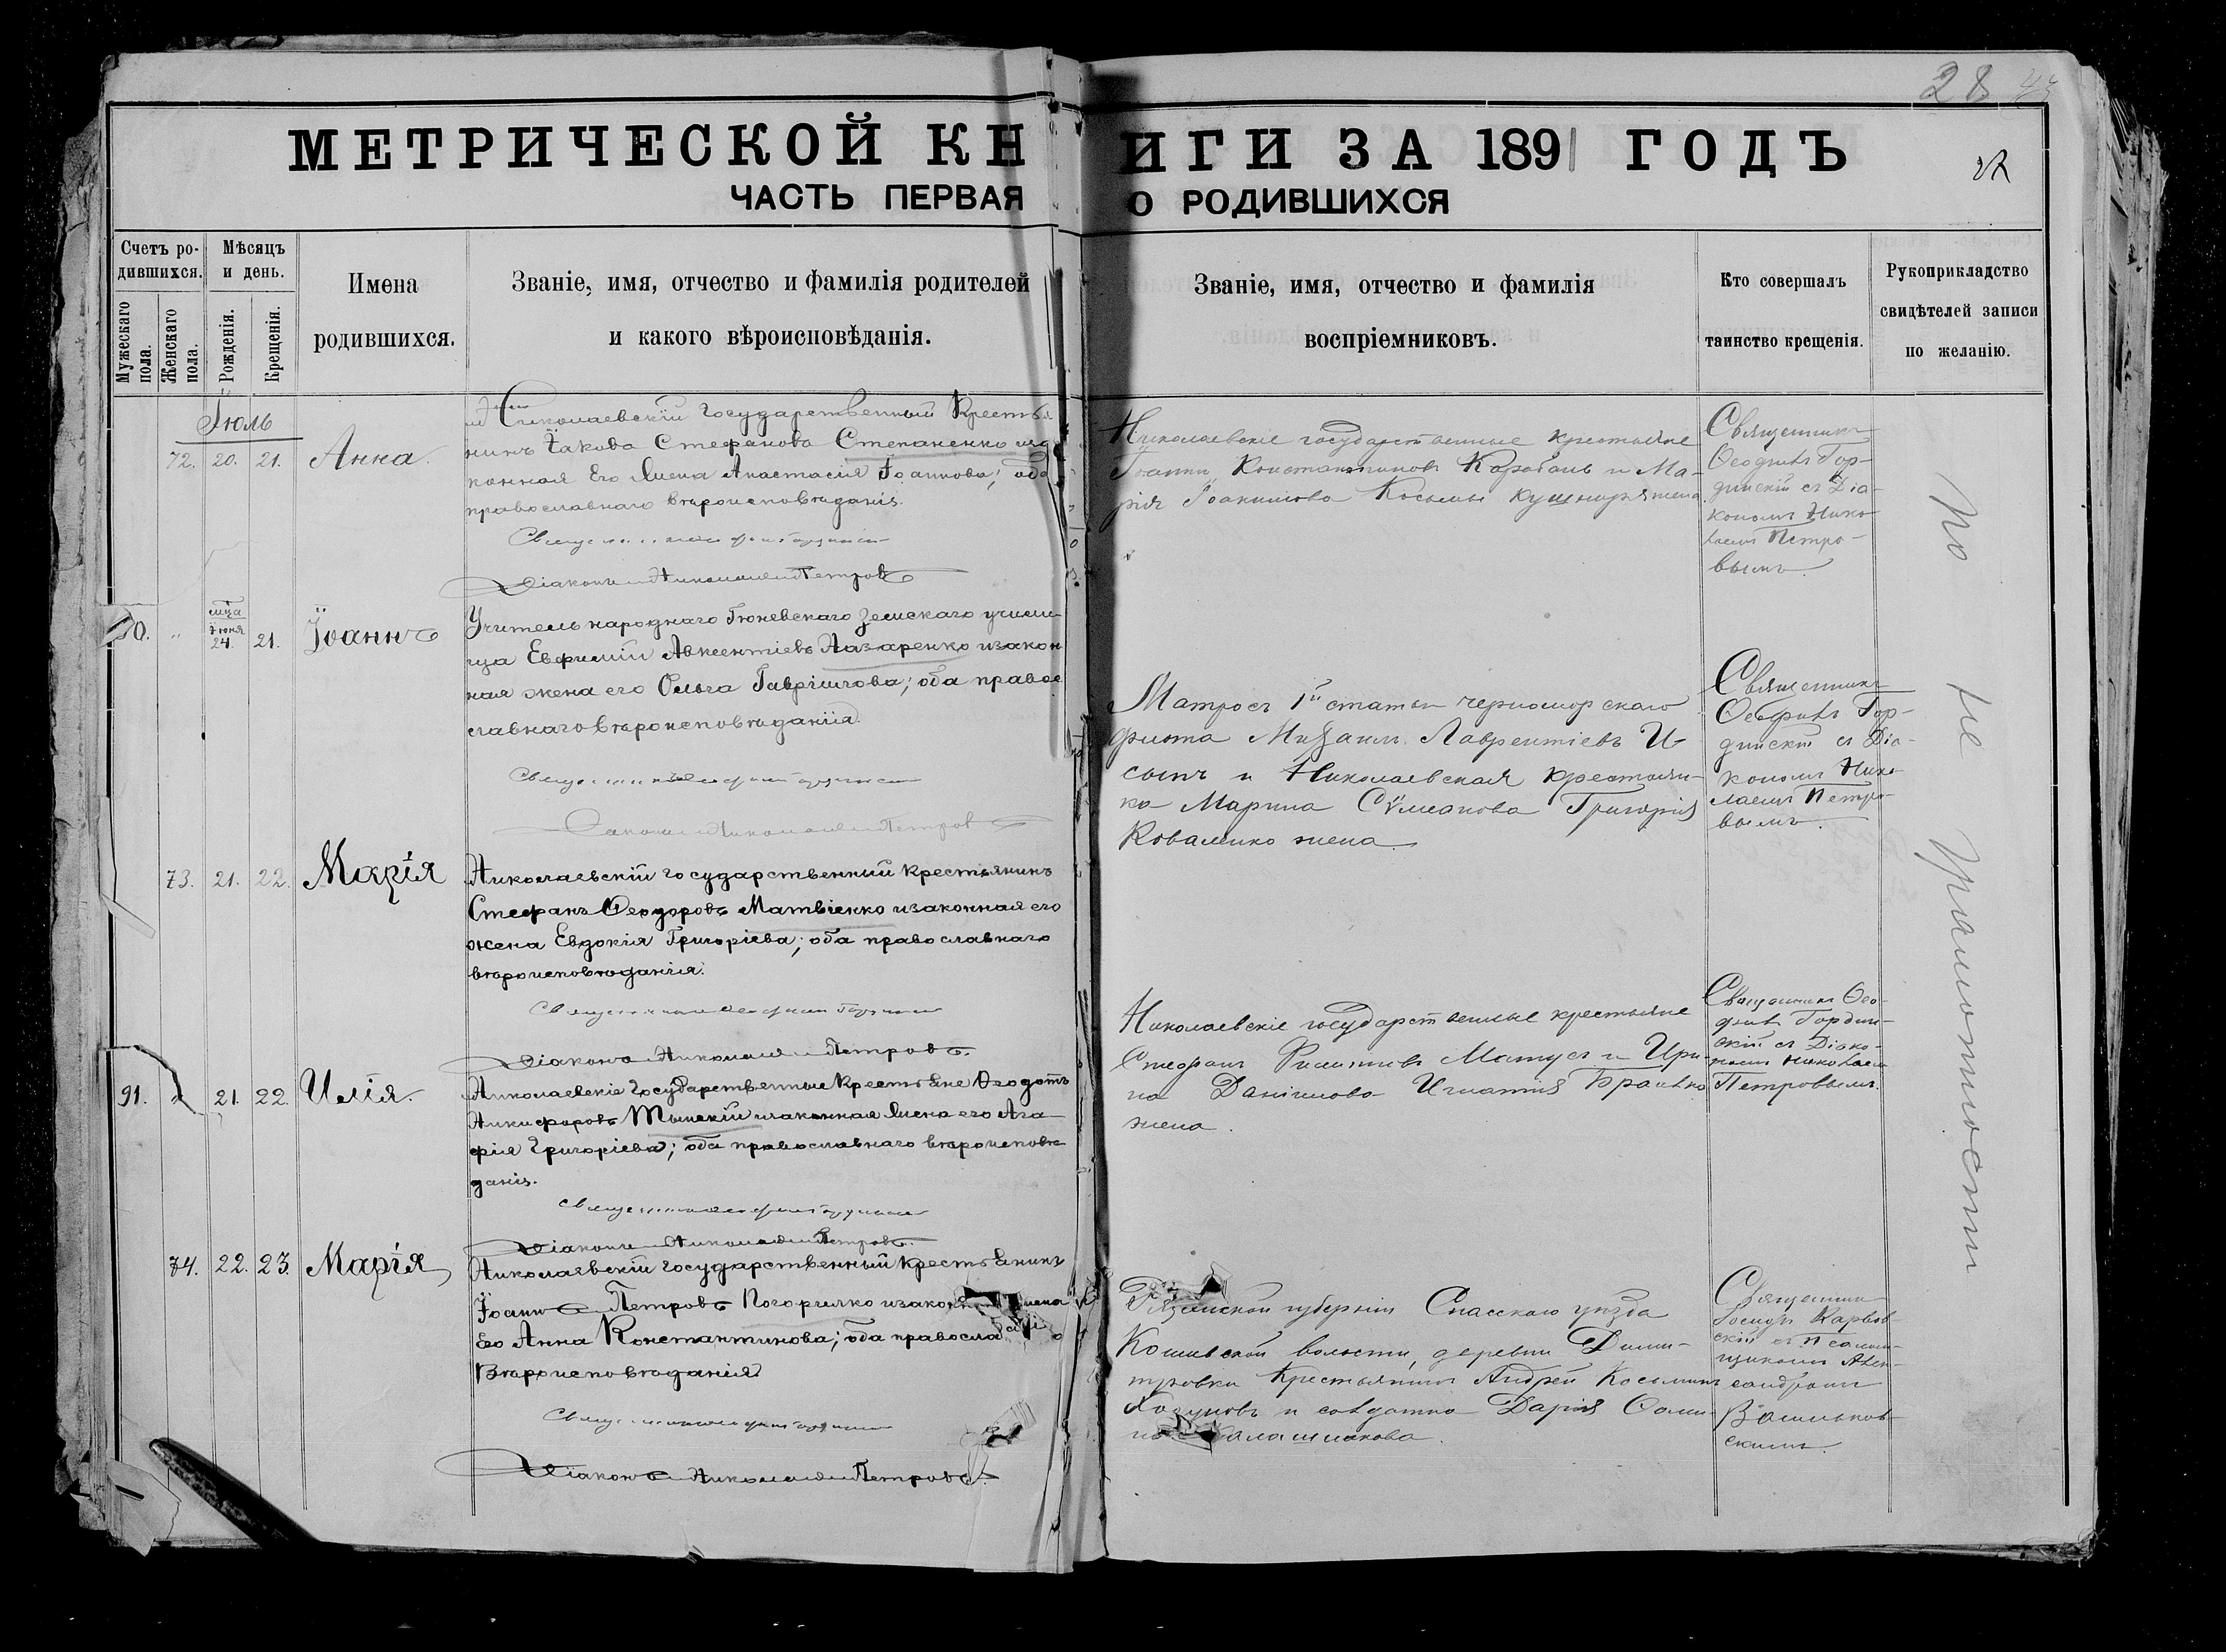 28
МЕТРИЧЕСКОЙ КНИГИ ЗА 1891 ГОДЪ
ЧАСТЬ ПЕРВАЯ О РОДИВШИХСЯ
Счетъ ро-
дившихся.
Мужескаго пола.
Женскаго пола.
Мѣсяцъ
и день.
Рожденія.
Крещенія.
Имена
родившихся.
Званіе, имя, отчество и фамилія родителей
и какого вѣроисповѣданія.
Званіе, имя, отчество и фамилія
воспріемниковъ.
Кто совершалъ
таинство крещенія.
Рукоприкладство
свидѣтелей записи
по желанію.
Іюль
72. 20. 21. Анна.
Николаевскій государственный Кресть
нинъ Іакова Стефанова Степаненко
конная Его Жена Анастасія Іоаннова; оба
православнаго вѣроисповѣданія.
Діаконъ Николай Петровъ
Николаевскіе государственные крестьяне
Іоаннъ Константиновъ Карабань и Ма-
рія Іоакимова Косьмы Кушниря жена
Священникъ
Ѳеофилъ Гор-
динскій съ Діа-
кономъ Нико-
лаемъ Петро-
вымъ.
90. „ мца Іюня 24. 21. Іоаннъ
Учитель народнаго Гюневскаго земскаго учили-
ща Евфимій Авксентіевъ Назаренко изакон
ная жена его Ольга Гавріилова; оба право
славнаго вѣроисповѣданія.
Діаконъ Николай Петровъ
Матросъ 1й статьи черноморскаго
флота Михаилъ Лаврентіевъ
и Николаевская крестьян-
ка Марина Григорія
Коваленко жена.
Священникъ
Ѳеофилъ Гор-
динскій съ Діа-
кономъ Нико-
лаемъ Петро-
вымъ.
73. 21. 22. Марія
Николаевскій государственный крестьянинъ
Стефанъ Ѳеодоровъ Матвіенко изаконная его
жена Евдокія Григоріева; оба православнаго
вѣроисповѣданія.
Діаконъ Николай Петровъ.
Николаевскіе государственные крестьяне
Стефанъ Филиповъ Матусъ и Ири-
на Даніилова Игнатія
жена.
Священникъ Ѳео-
филъ Гордин-
скій съ Діако-
номъ Николаемъ
Петровымъ.
91. „ 21. 22. Илія.
Николаевскіе Государственные Крестьяне Ѳеодотъ
Никифоровъ изаконная Жена его Ага-
фія Григоріева; оба православнаго вѣроисповѣ
данія.
Діаконъ Николай Петровъ.
74. 22. 23. Марія
Николаевскій государственный крестьянинъ
Іоаннъ Петровъ Погорилко изакон жена
Его Анна Константинова; оба правосла
Вѣроисповѣданія
Діаконъ Николай Петровъ.
губерніи Спасскаго уѣзда
волости, деревни Дими-
тровки Крестьянинъ Андрей Косьминъ
и солдатка Дарія
Священникъ
Іосифъ
скій съ Псалом-
щикомъ Алек-
сандромъ
Васильков-
скимъ.
По не грамотности